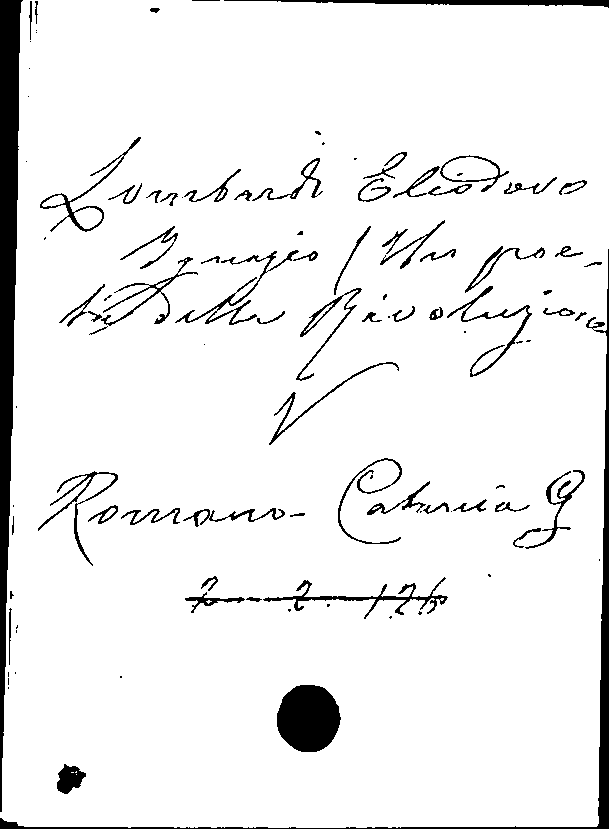 Lombardi Eliodoro
Ignazio / Un poe-
ta della Rivoluzione
V
Romano-Catania G
2 2. 126